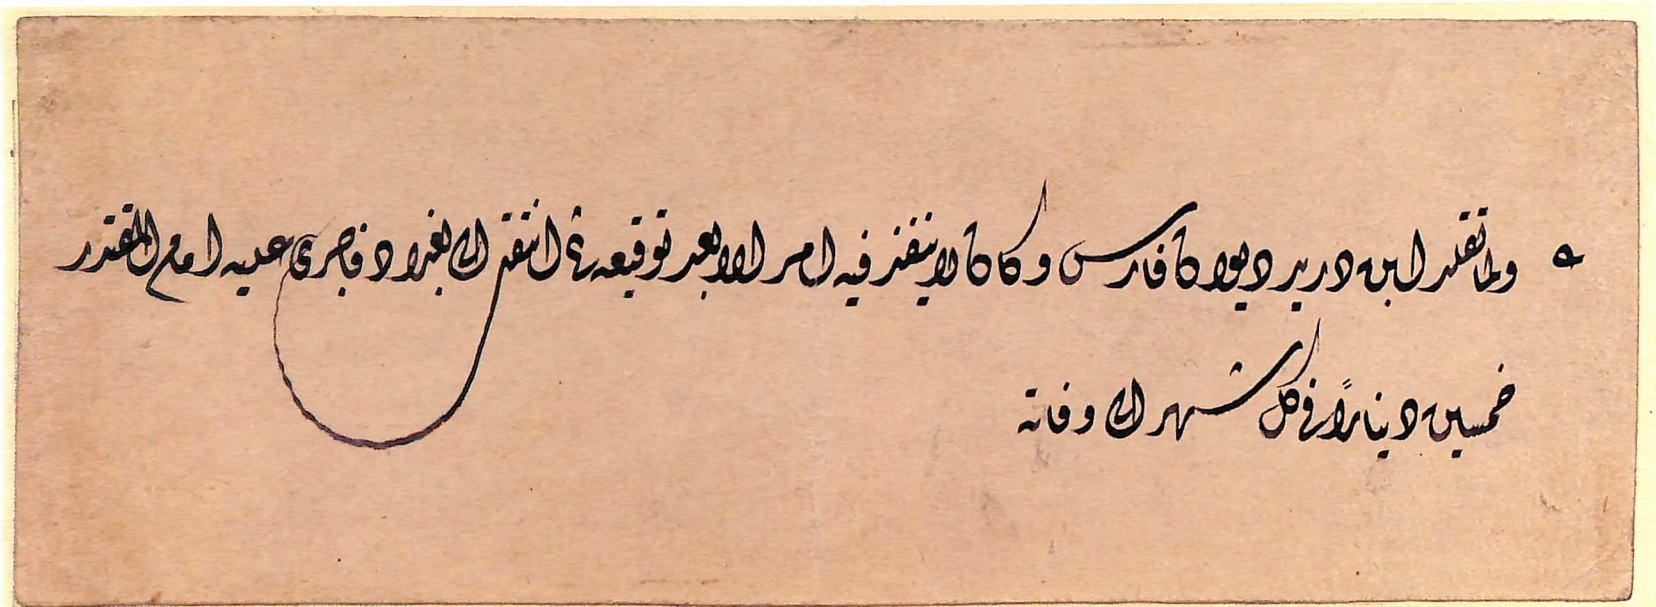 ولما تقلد ابن دريد ديوان فارس وكان لا ينفذ فيه امر الا بعد توقيعه ثم انتقل الى بغداد فاجرى عليه الامام المقتدر
خمسين دينارًا في كل شهر الى وفاته